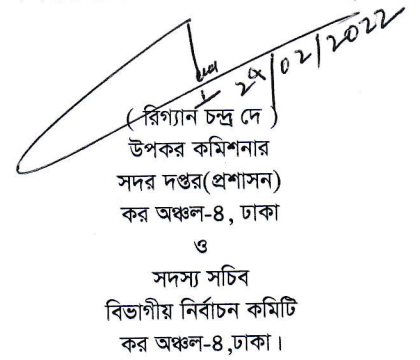 ( রিগ্যান চন্দ্র দে )
উপকর কমিশনার
সদর দপ্তর(প্রশাসন)
কর অঞ্চল-৪, ঢাকা
ও
সদস্য সচিব
বিভাগীয় নির্বাচন কমিটি
কর অঞ্চল-৪,ঢাকা।